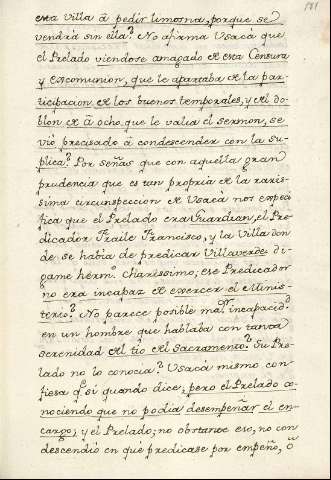 181
esta villa â pedir limosna, porque se
vendrá sin ella? No afirma Usacà que
el Prelado viendose amagado de esta Censura
y excomunion, que le apartaba de la par-
ticipacion de los buenos temporales, y del do-
blon de â ocho que le valia el sermon, se
vió precisado â condescender con la su-
plica? Por señas que con aquella gran
prudencia que es tan propria de la raris-
sima circunspeccion de Usacà nos expeci-
fica que el Prelado era Guardian, el Pre-
dicador Fraile Francisco, y la Villa don-
de se habia de predicar Villaverde: di-
game hermo. charissimo, ese Predicador
no era incapaz de exercer el Minis-
terio? No parece posible maior incapacid.d
en un hombre que hablaba con tanta
serenidad del tio del Sacramento? Su Pre-
lado no lo conocia? Usacà mismo con-
fiesa qe. si quando dice, pero el Prelado co-
nociendo que no podia desempeñar el en-
cargo; y el Prelado, no obstante eso, no con-
descendió en que predicase por empeño, ô